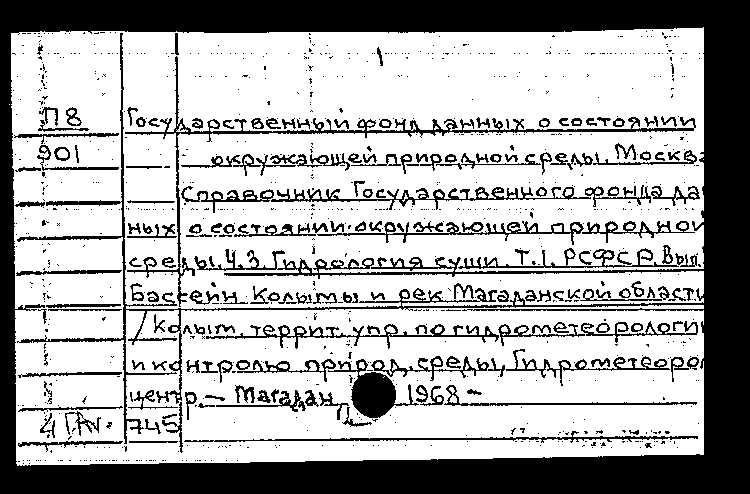 П8 Государственный фонд данных о состоянии
901 окружающей природной среды. Москва
Справочник Государственного фонда да
ных о состоянии окружающей природной
среды. Ч.3. Гидрология суши. Т.1. РСФСР. Вып.
Бассейн Колымы и рек Магаданской области
/Колым. террит. упр. по гидрометеорологии
и контролю природ. среды, Гидрометеорол
центр. — Магадан, 1968 —
745